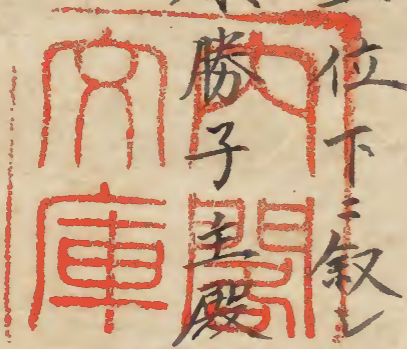 位下ニ叙し
勝子主殿
内閣
文庫